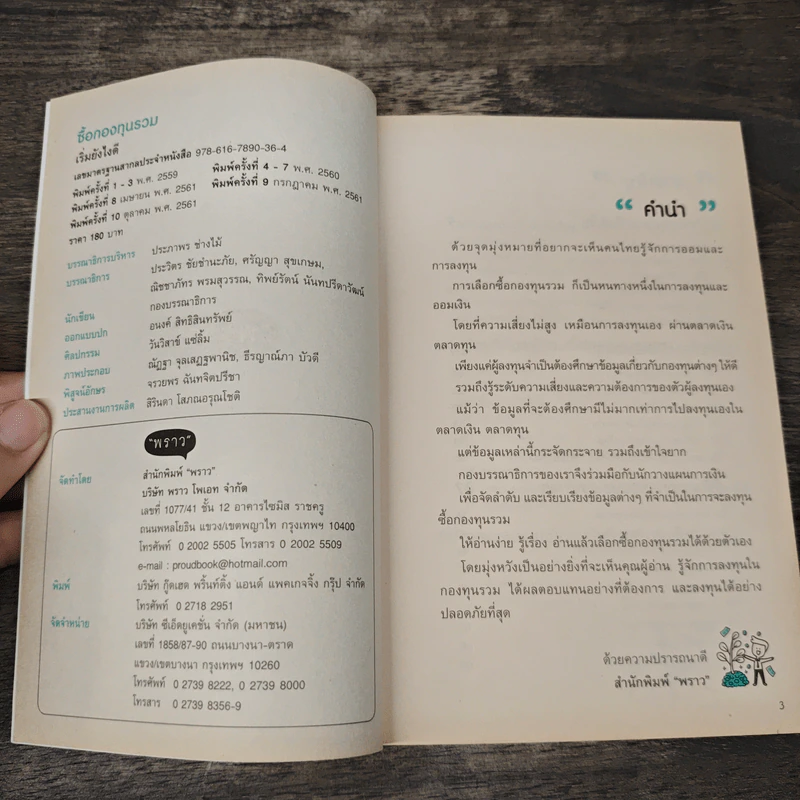 ซื้อกองทุนรวม
เริ่มยังไงดี
เลขมาตรฐานสากลประจำหนังสือ 978-616-7890-36-4
พิมพ์ครั้งที่ 1 - 3 พ.ศ. 2559 พิมพ์ครั้งที่ 4 - 7 พ.ศ. 2560
พิมพ์ครั้งที่ 8 เมษายน พ.ศ. 2561 พิมพ์ครั้งที่ 9 กรกฎาคม พ.ศ. 2561
พิมพ์ครั้งที่ 10 ตุลาคม พ.ศ. 2561
ราคา 180 บาท
บรรณาธิการบริหาร ประภาพร ช่างไม้
บรรณาธิการ ประวิตร ชัยชำนะภัย, ศรัญญา สุขเกษม,
ณิชชาภัทร พรมสุวรรณ, ทิพย์รัตน์ นันทปรีดาวัฒน์
นักเขียน กองบรรณาธิการ
ออกแบบปก อนงค์ สิทธิสินทรัพย์
ศิลปกรรม วันวิสาข์ แซ่ลิ้ม
ภาพประกอบ ณัฏฐา จุลเสฏฐพานิช, ธีรญาณ์ภา บัวดี
พิสูจน์อักษร จรวยพร ฉันทจิตปรีชา
ประสานงานการผลิต สิรินดา โสภณอรุณโชติ
"พราว"
จัดทำโดย สำนักพิมพ์ "พราว"
บริษัท พราว โพเอท จำกัด
เลขที่ 1077/41 ชั้น 12 อาคารไซมิส ราชครู
ถนนพหลโยธิน แขวง/เขตพญาไท กรุงเทพฯ 10400
โทรศัพท์ 0 2002 5505 โทรสาร 0 2002 5509
e-mail : proudbook@hotmail.com
พิมพ์ บริษัท กู๊ดเฮด พริ้นท์ติ้ง แอนด์ แพคเกจจิ้ง กรุ๊ป จำกัด
โทรศัพท์ 0 2718 2951
จัดจำหน่าย บริษัท ซีเอ็ดยูเคชั่น จำกัด (มหาชน)
เลขที่ 1858/87-90 ถนนบางนา-ตราด
แขวง/เขตบางนา กรุงเทพฯ 10260
โทรศัพท์ 0 2739 8222, 0 2739 8000
โทรสาร 0 2739 8356-9
“ คำนำ ”
ด้วยจุดมุ่งหมายที่อยากจะเห็นคนไทยรู้จักการออมและ
การลงทุน
การเลือกซื้อกองทุนรวม ก็เป็นหนทางหนึ่งในการลงทุนและ
ออมเงิน
โดยที่ความเสี่ยงไม่สูง เหมือนการลงทุนเอง ผ่านตลาดเงิน
ตลาดทุน
เพียงแค่ผู้ลงทุนจำเป็นต้องศึกษาข้อมูลเกี่ยวกับกองทุนต่างๆ ให้ดี
รวมถึงรู้ระดับความเสี่ยงและความต้องการของตัวผู้ลงทุนเอง
แม้ว่า ข้อมูลที่จะต้องศึกษามีไม่มากเท่าการไปลงทุนเองใน
ตลาดเงิน ตลาดทุน
แต่ข้อมูลเหล่านี้กระจัดกระจาย รวมถึงเข้าใจยาก
กองบรรณาธิการของเราจึงร่วมมือกับนักวางแผนการเงิน
เพื่อจัดลำดับ และเรียบเรียงข้อมูลต่างๆ ที่จำเป็นในการจะลงทุน
ซื้อกองทุนรวม
ให้อ่านง่าย รู้เรื่อง อ่านแล้วเลือกซื้อกองทุนรวมได้ด้วยตัวเอง
โดยมุ่งหวังเป็นอย่างยิ่งที่จะเห็นคุณผู้อ่าน รู้จักการลงทุนใน
กองทุนรวม ได้ผลตอบแทนอย่างที่ต้องการ และลงทุนได้อย่าง
ปลอดภัยที่สุด
ด้วยความปรารถนาดี
สำนักพิมพ์ “พราว”
3